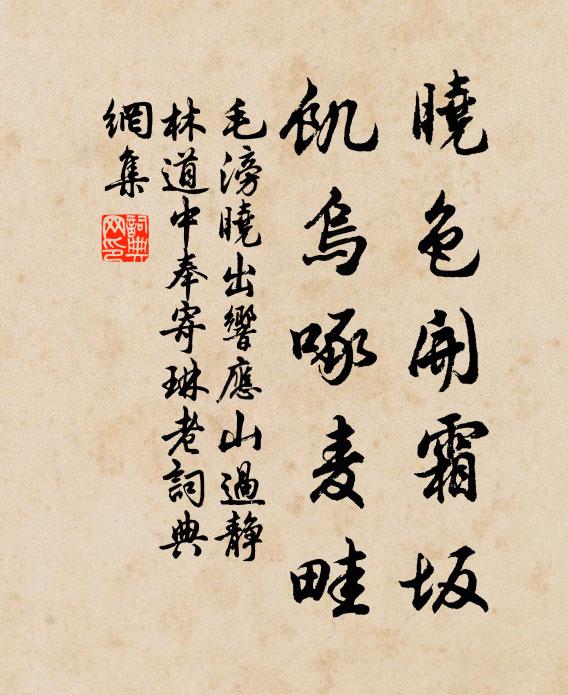 曉色開霜坂
飢烏啄麦畦
毛滂曉出響應山過静
林道中奉寄琳老詞典
網集
詞典
网印